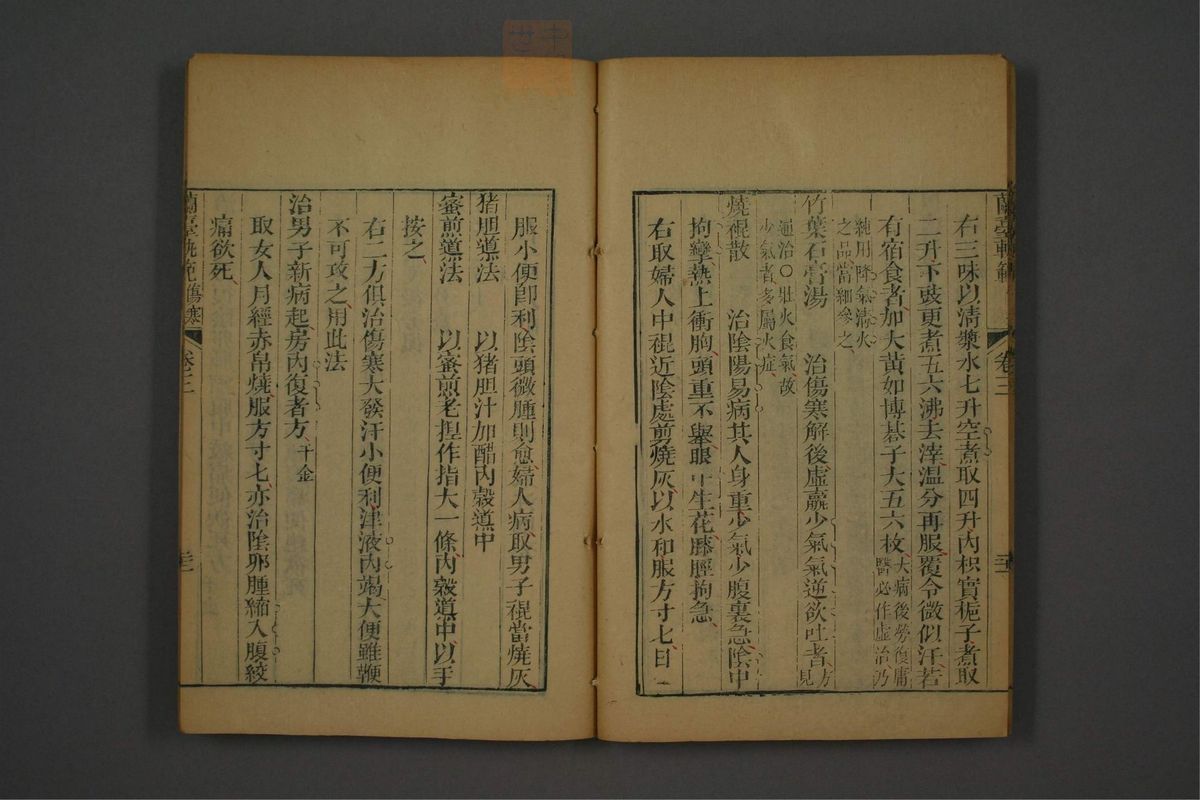 右三味以清漿水七升空煮取四升內枳實梔子煮取
二升下豉更煮五六沸去滓溫分再服覆令微似汗若
有宿食者加大黃如博碁子大五六枚大病後勞復庸
醫必作虛治乃
純用降氣清火
之品當細參之
竹葉石膏湯　治傷寒解後虛羸少氣氣逆欲吐者方
見
通治〇壯火食氣故
少氣者多屬火症
燒裩散　治陰陽易病其人身重少氣少腹裏急陰中
拘攣熱上衝胸頭重不舉眼中生花膝脛拘急
右取婦人中裩近陰處剪燒灰以水和服方寸匕日
服小便即利陰頭微腫則愈婦人病取男子裩當燒灰
猪胆導法　以猪胆汁加醋內穀道中
蜜煎導法　以蜜煎老揑作指大一條內穀道中以手
按之
右二方俱治傷寒大發汗小便利津液內竭大便雖鞭
不可攻之用此法
治男子新病起房內復者方千金
取女人月經赤帛燒服方寸匕亦治陰邪腫縮入腹絞
痛欲死
蘭臺軌範傷寒　卷三
蘭臺軌範　卷三